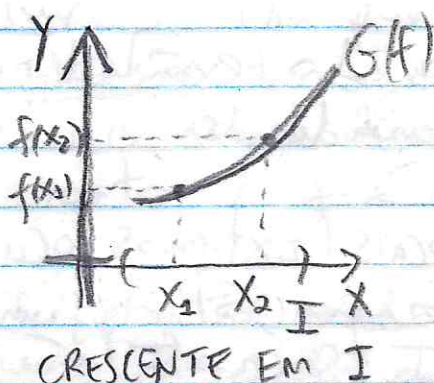 Y
G(f)
f(x₂)
f(x₁)
( )
X₁ X₂ I X
CRESCENTE EM I